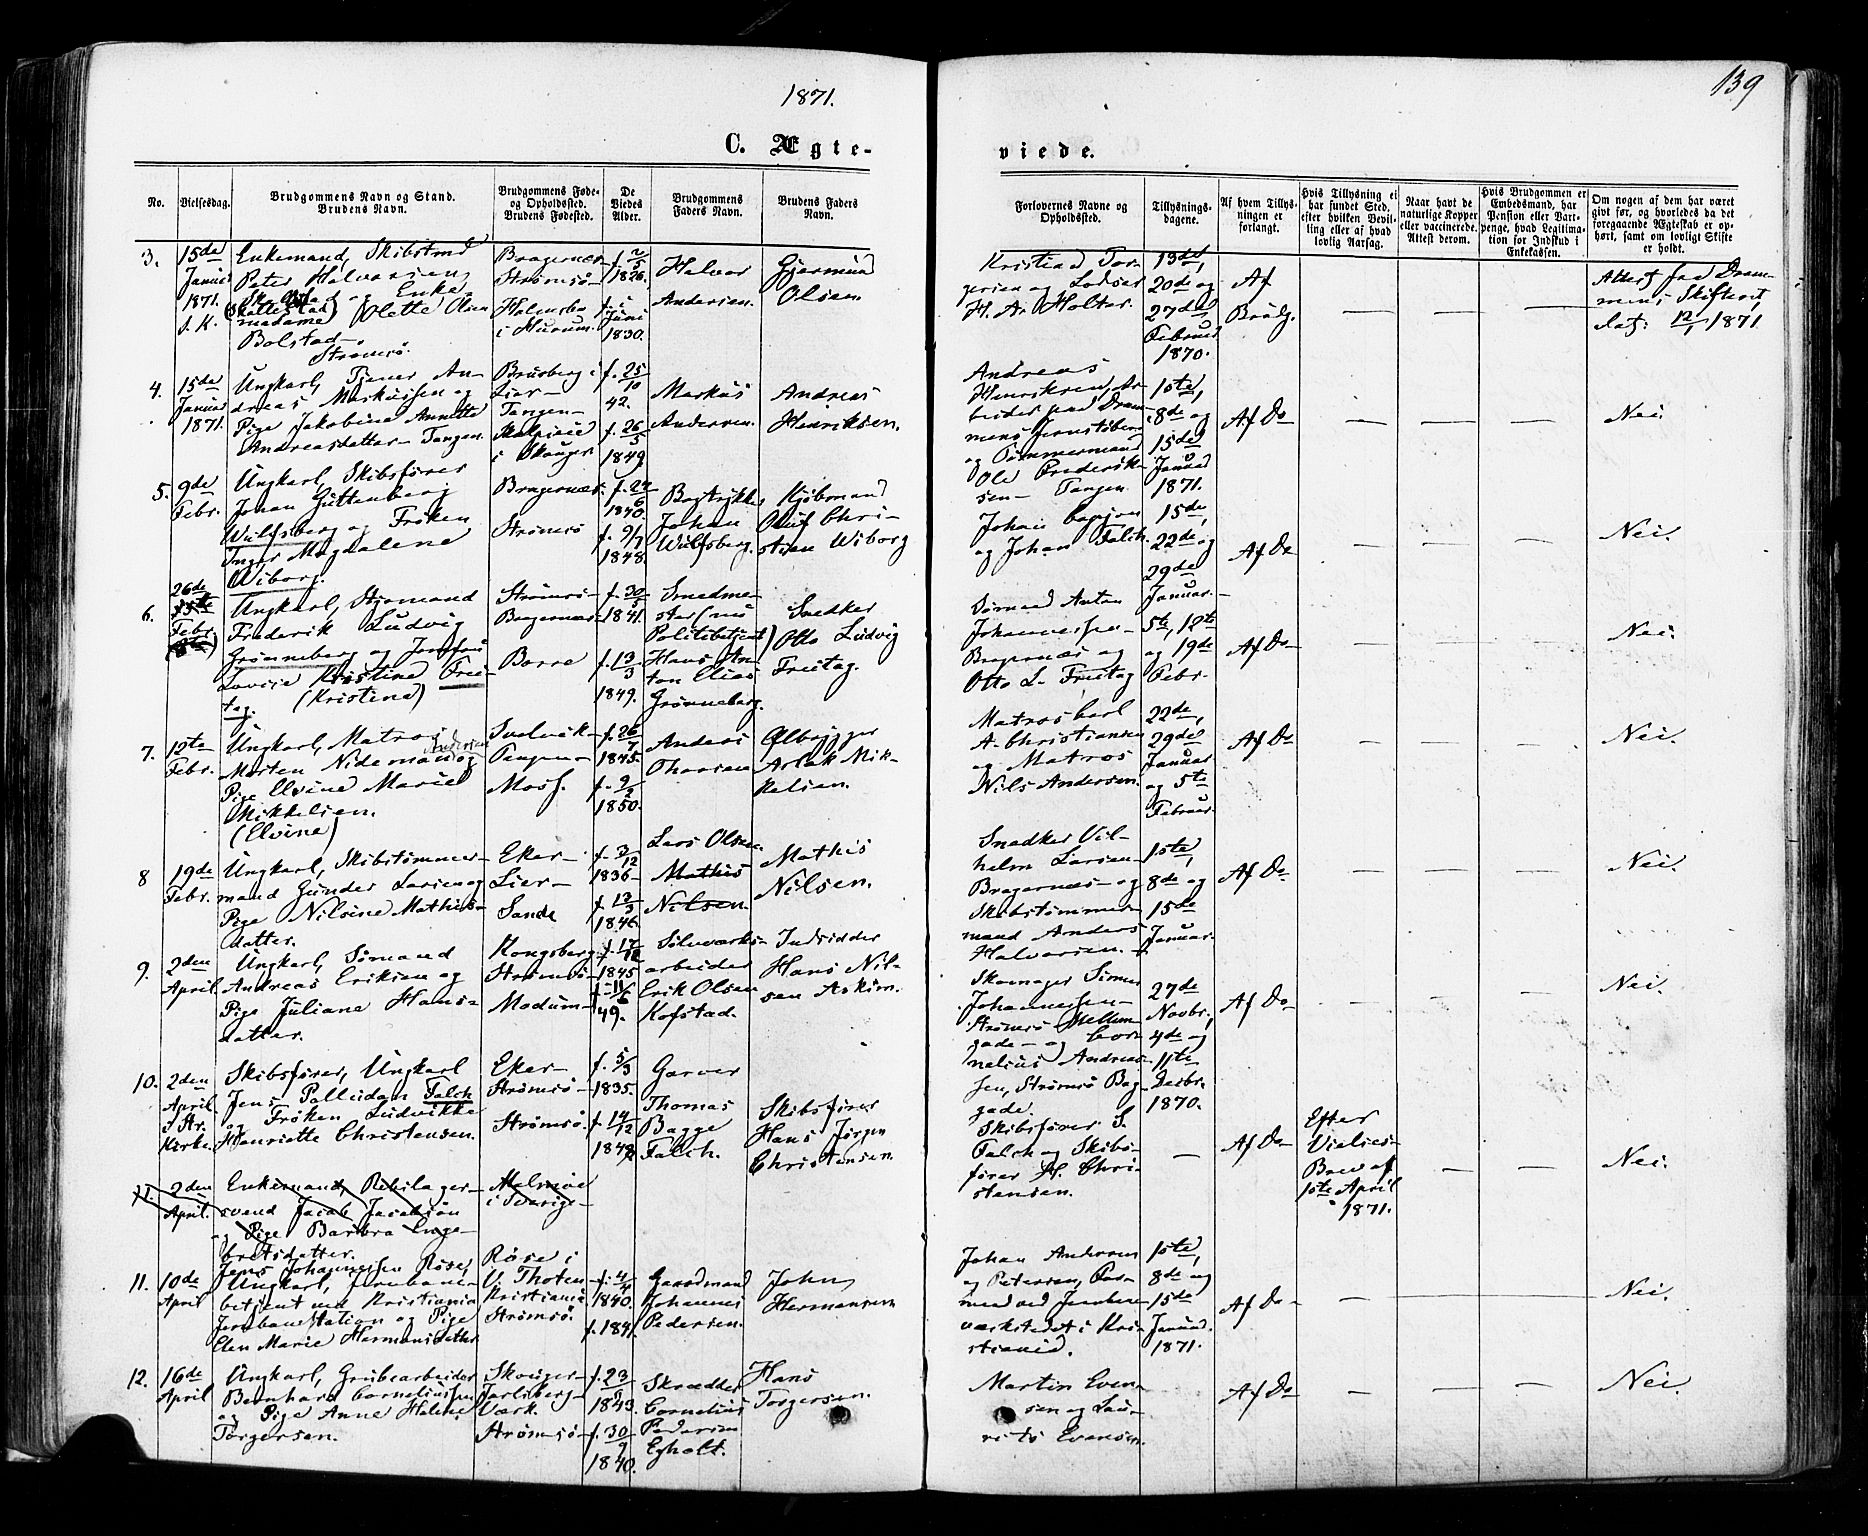 1871.
139
C. Ægte-
viede.
No.
Vielsesdag.
Brudgommens Navn og Stand.
Brudens Navn.
Brudgommens Føde-
og Opholdssted.
Brudens Fødested.
De
Viedes
Alder.
Brudgommens
Faders Navn.
Brudens Faders
Navn.
Forlovernes Navne og
Opholdssted.
Tillysnings-
dagene.
Af hvem Tillys-
ningen er
forlangt.
Hvis Tillysning ei
har fundet Sted,
efter hvilken Bevil-
ling eller af hvad
lovlig Aarsag.
Naar havt de
naturlige Kopper
eller vaccinerede.
Attest derom.
Hvis Brudgommen er
Embedsmand, har
Pension eller Vart-
penge, hvad Legitima-
tion for Indskud i
Enkekassen.
Om nogen af dem har været
givt før, og hvorledes da det
foregaaende Ægteskab er op-
hørt, samt om lovligt Skifte
er holdt.
3.
15de
Januar
1871.
S. K.
Enkemand, Skibstmd
Peter Halvorsen
og Enke
madame Olette Olsen
Bolstad
Strømsø.
Bragernæs
Strømsø-
Holmsbo
i Hurum.
1826.
f. i
Juni
1830.
Halvor
Andersen.
Gjermund
Olsen
Kristian Tor-
gersen og Lodser
H. A. Holter.
13de,
20de og
27de
Februar
1870.
Af
Brudg.
Attest fra Dram-
mens Skifteret
dat: 12/1 1871
4.
15de
Januar
1871.
Ungkarl, Tjener An-
dreas Markussen og
Pige Jakobine Annette
Andreasdatter- Tangen.
Brusberg i
Lier-
Tangen-
i Skouger
f. 25/10
42.
f. 26/5
1849
Markus
Andersen.
Andreas
Henriksen.
Andreas
Henriksen, Ar-
beider paa Dram-
mens Jernstøberi
og Tømmermand
Ole Frederik-
sen- Tangen.
1ste,
8de og
15de
Januar
1871.
Af Do
Nei.
5.
9de
Febr.
Ungkarl, Skibsfører
Johan Guttenberg
Wulfsberg og Frøken
Inger Magdalene
Wiborg.
Bragernæs.
Strømsø
f. 24/6
1840.
f. 9/7
1848.
Bogtrykker
Johan
Wulfsberg.
Kjøbmand
Oluf Chri-
stian Wiborg
og Johan Falch.
15de,
22de og
29de
Januar.
Af Do
Nei.
6.
26de
Febr.
Ungkarl, Styrmand
Frederik Ludvig
Grønneberg og Jomfru
Lovise Kristine Frei-
tag. (Kristina)
Strømsø-
Bragernæs
Borre
1841.
f. 13/3
1849.
Smedme-
ster (nu
Politibetjent)
Hans An-
ton Elias
Grønneberg.
Snedker
Otto Ludvig
Freitag.
Sømand Anton
Johannessen-
Bragernæs og
Otto L. Freitag
5te, 12te
og 19de
Febr.
Af Do
Nei.
7.
12te
Febr.
Ungkarl, Matros
Andersen
Morten Nidemann og
Pige Elvine Marie
Mikkelsen.
(Elvine)
Svelvik-
Tangen-
Moss.
f. 26/7
1845.
f. 9/2
1850.
Anders
Thorsen
Ølbrygger
Aslak Mik-
kelsen.
Matros Karl
A. Christiansen
og Matros
Nils Andersen.
22de,
29de
Januar
og 5te
Februar.
Af Do
Nei.
8
19de
Febr.
Ungkarl, Skibstømmer-
mand Gunder Larsen og
Pige Nilsine Mathis-
datter.
Eker-
Lier-
Sande
f. 3/12
1836-
f. 12/3
1846.
Lars Olsen
Mathis
Nilsen.
Mathis
Nilsen.
Snedker Vil-
helm Larsen-
Bragernæs- og
Skibstømmer-
mand Anders
Halvorsen.
1ste,
8de og
15de
Januar.
Af Do
Nei.
9.
2den
April
Ungkarl, Sømand
Andreas Eriksen og
Pige Juliane Hans-
datter.
Kongsberg
Strømsø-
Modum-
1845
f. 11/6
49.
Sølvværks-
arbeider
Erik Olsen
Kofstad.
Indsidder
Hans Nil-
sen Askim.
Skomager Simen
Johannessen-
Strømsø Mellem-
gade- og Cor-
nelius Andreas-
sen, Strømsø Bag-
gade.
27de
Novbr,
4de og
11te
Decbr.
1870.
Af Do
Nei.
10.
2den
April
i Str.
Kirke
Skibsfører, Ungkarl
Jens Palludan Falch
og Frøken Ludvikke
Henriette Christensen.
Eker-
Strømsø-
Strømsø.
f. 5/3
1835.
f. 14/12
Garver
Thomas
Bagge
Falch.
Skibsfører
Hans Jørgen
Christensen
Skibsfører S.
Falch og Skibs-
fører H. Chri-
stensen.
Af Do
Efter
Vielses-
Brev af
1ste April
1871.
Nei.
11.
2den
April.
Enkemand, Rebslager-
svend Jacob Jacobsøn
og Pige Barbra Enge-
bretsdatter.
Malmøe
i Sverige-
11.
10de
April
Jens Johannessen Røise,
Ungkarl, Jernbane-
betjent ved Kristiania
Jernbanestation og Pige
Elen Marie Hermansdatter
Røise i
V. Thoten-
Kristiania
Strømsø.
f. 4/4
1840.
f. 1841.
Gaardmand
Johannes
Pedersen.
John
Hermansen
Johan Andersen
og Petersen, For-
mænd ved Jernbane-
værkstedet i Kri-
stiania.
1ste,
8de og
15de
Januar.
1871.
Af Do
Nei.
12.
16de
April
Ungkarl, Grubearbeider
Bernhard Corneliussen
og Pige Anne Helene
Torgersen.
Skouger-
Jarlsberg-
Værk.
Strømsø-
1843.
f. 30/9
1840.
Skrædder
Cornelius
Pedersen
Egholt.
Hans
Torgersen.
Martin Even-
sen og Lau-
rits Evensen.
Af Do
Nei.